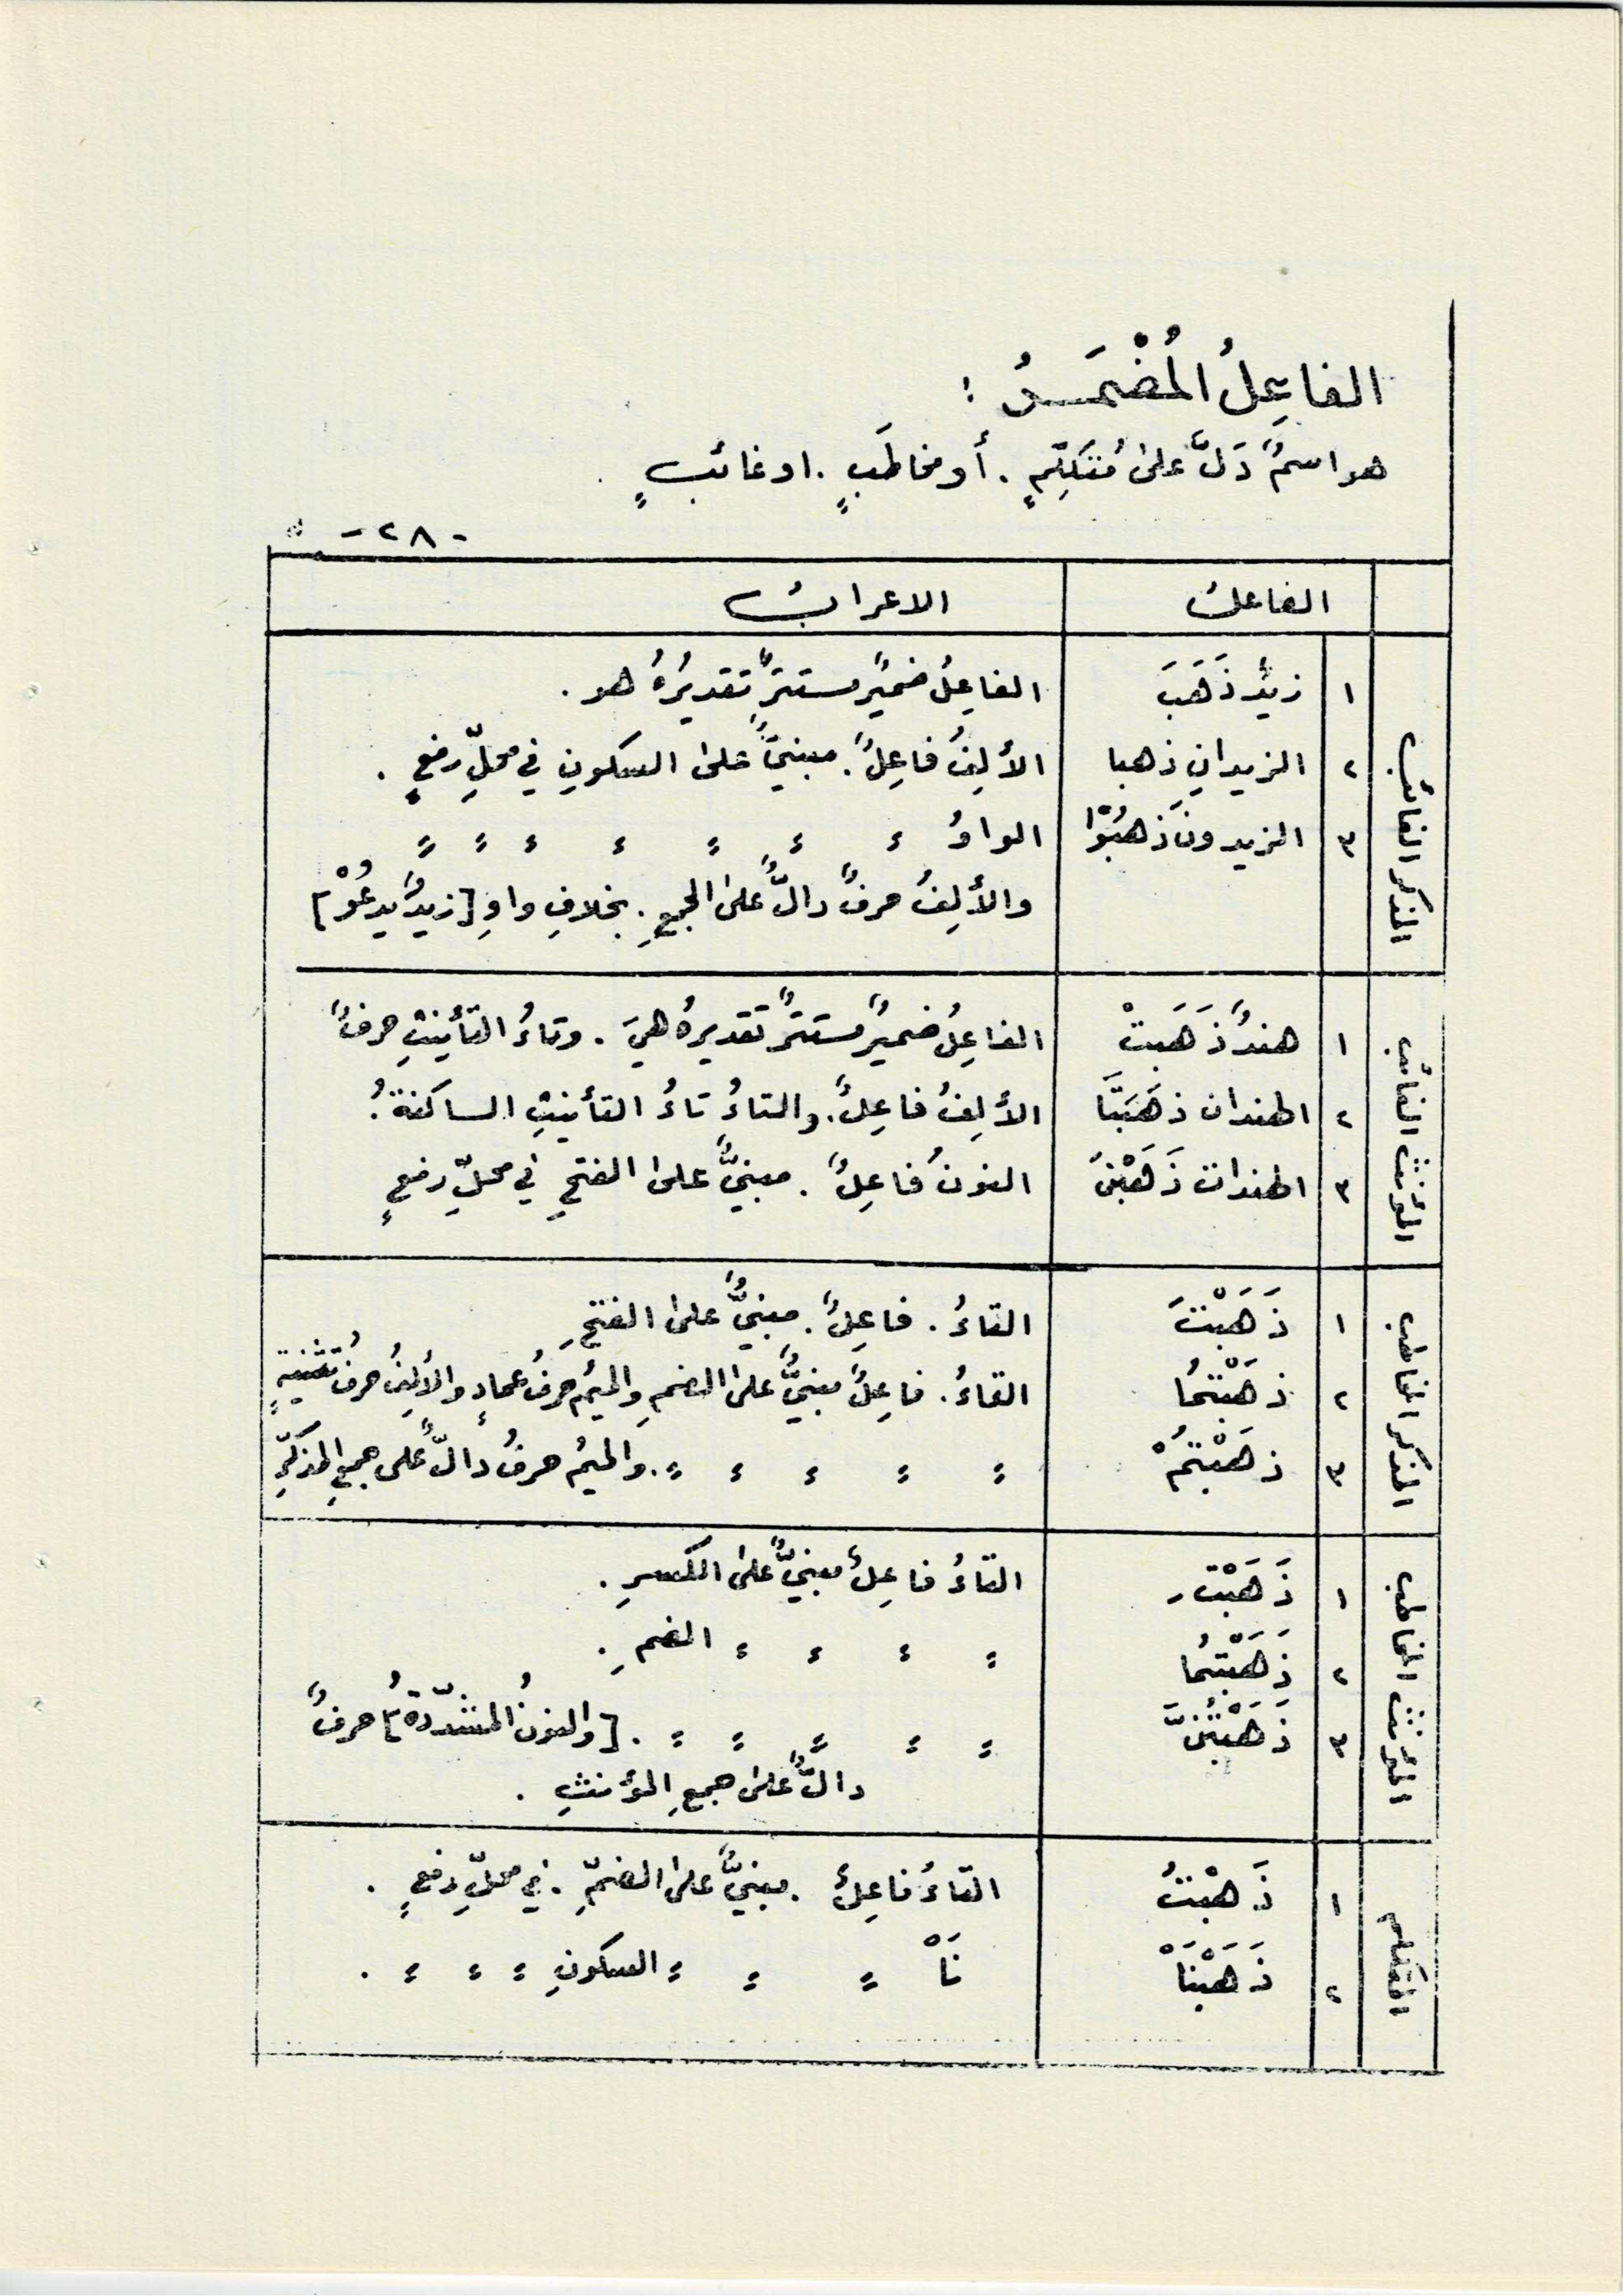 الفاعِلُ المُضْمَرُ :
هو اسمٌ دَلَّ على مُتَكَلِّمٍ . أو مخاطَبٍ . او غائبٍ
- ٢٨ -
الفاعلُ الاعرابُ
المذكر الغائب
١ زيدٌ ذَهَبَ الفاعِلُ ضميرٌ مستترٌ تقديرُهُ هو .
٢ الزيدانِ ذهبا الألِفُ فاعِلٌ . مبنيٌّ على السكونِ في محلِّ رفعٍ .
٣ الزيدونَ ذهبُوْا الواوُ ؛ ؛ ؛ ؛ ؛ ؛ ؛
والألِفُ حرفٌ دالٌّ على الجمعِ . بخلافِ واوِ [زيدٌ يدعُوْ]
المؤنث الغائب
١ هندٌ ذَهَبَتْ الفاعِلُ ضميرٌ مستترٌ تقديرهُ هيَ . وتاءُ التأنيثِ حرفٌ
٢ الهندان ذهَبَتَا الألِفُ فاعِلٌ . والتاءُ تاءُ التأنيثِ الساكنةُ .
٣ الهندات ذَهَبْنَ النونُ فاعِلٌ . مبنيٌّ على الفتحِ في محلِّ رفعٍ
المذكر المخاطب
١ ذَهَبْتَ التاءُ . فاعِلٌ . مبنيٌّ على الفتحِ
٢ ذهَبْتُمَا التاءُ . فاعِلٌ مبنيٌّ على الضمِ والميمُ حرفُ عمادٍ والألِفُ حرفُ تثنيةٍ
٣ ذهَبْتُمْ ؛ ؛ ؛ ؛ ؛ . والميمُ حرفُ دالٌّ على جمعِ المذكَّرِ
المؤنث المخاطب
١ ذَهَبْتِ التاءُ فاعِلٌ مبنيٌّ على الكسرِ .
٢ ذَهَبْتُمَا ؛ ؛ ؛ ؛ الضمِ .
٣ ذَهَبْتُنَّ ؛ ؛ ؛ ؛ ؛ . [والنونُ المشدّدةُ] حرفٌ
دالٌّ على جمعِ المؤنثِ .
المتكلم
١ ذَهبْتُ التاءُ فاعِلٌ . مبنيٌّ على الضمِّ . في محلِّ رفعٍ .
٢ ذَهَبْنَاْ نَاْ ؛ ؛ ؛ السكونِ ؛ ؛ ؛ .